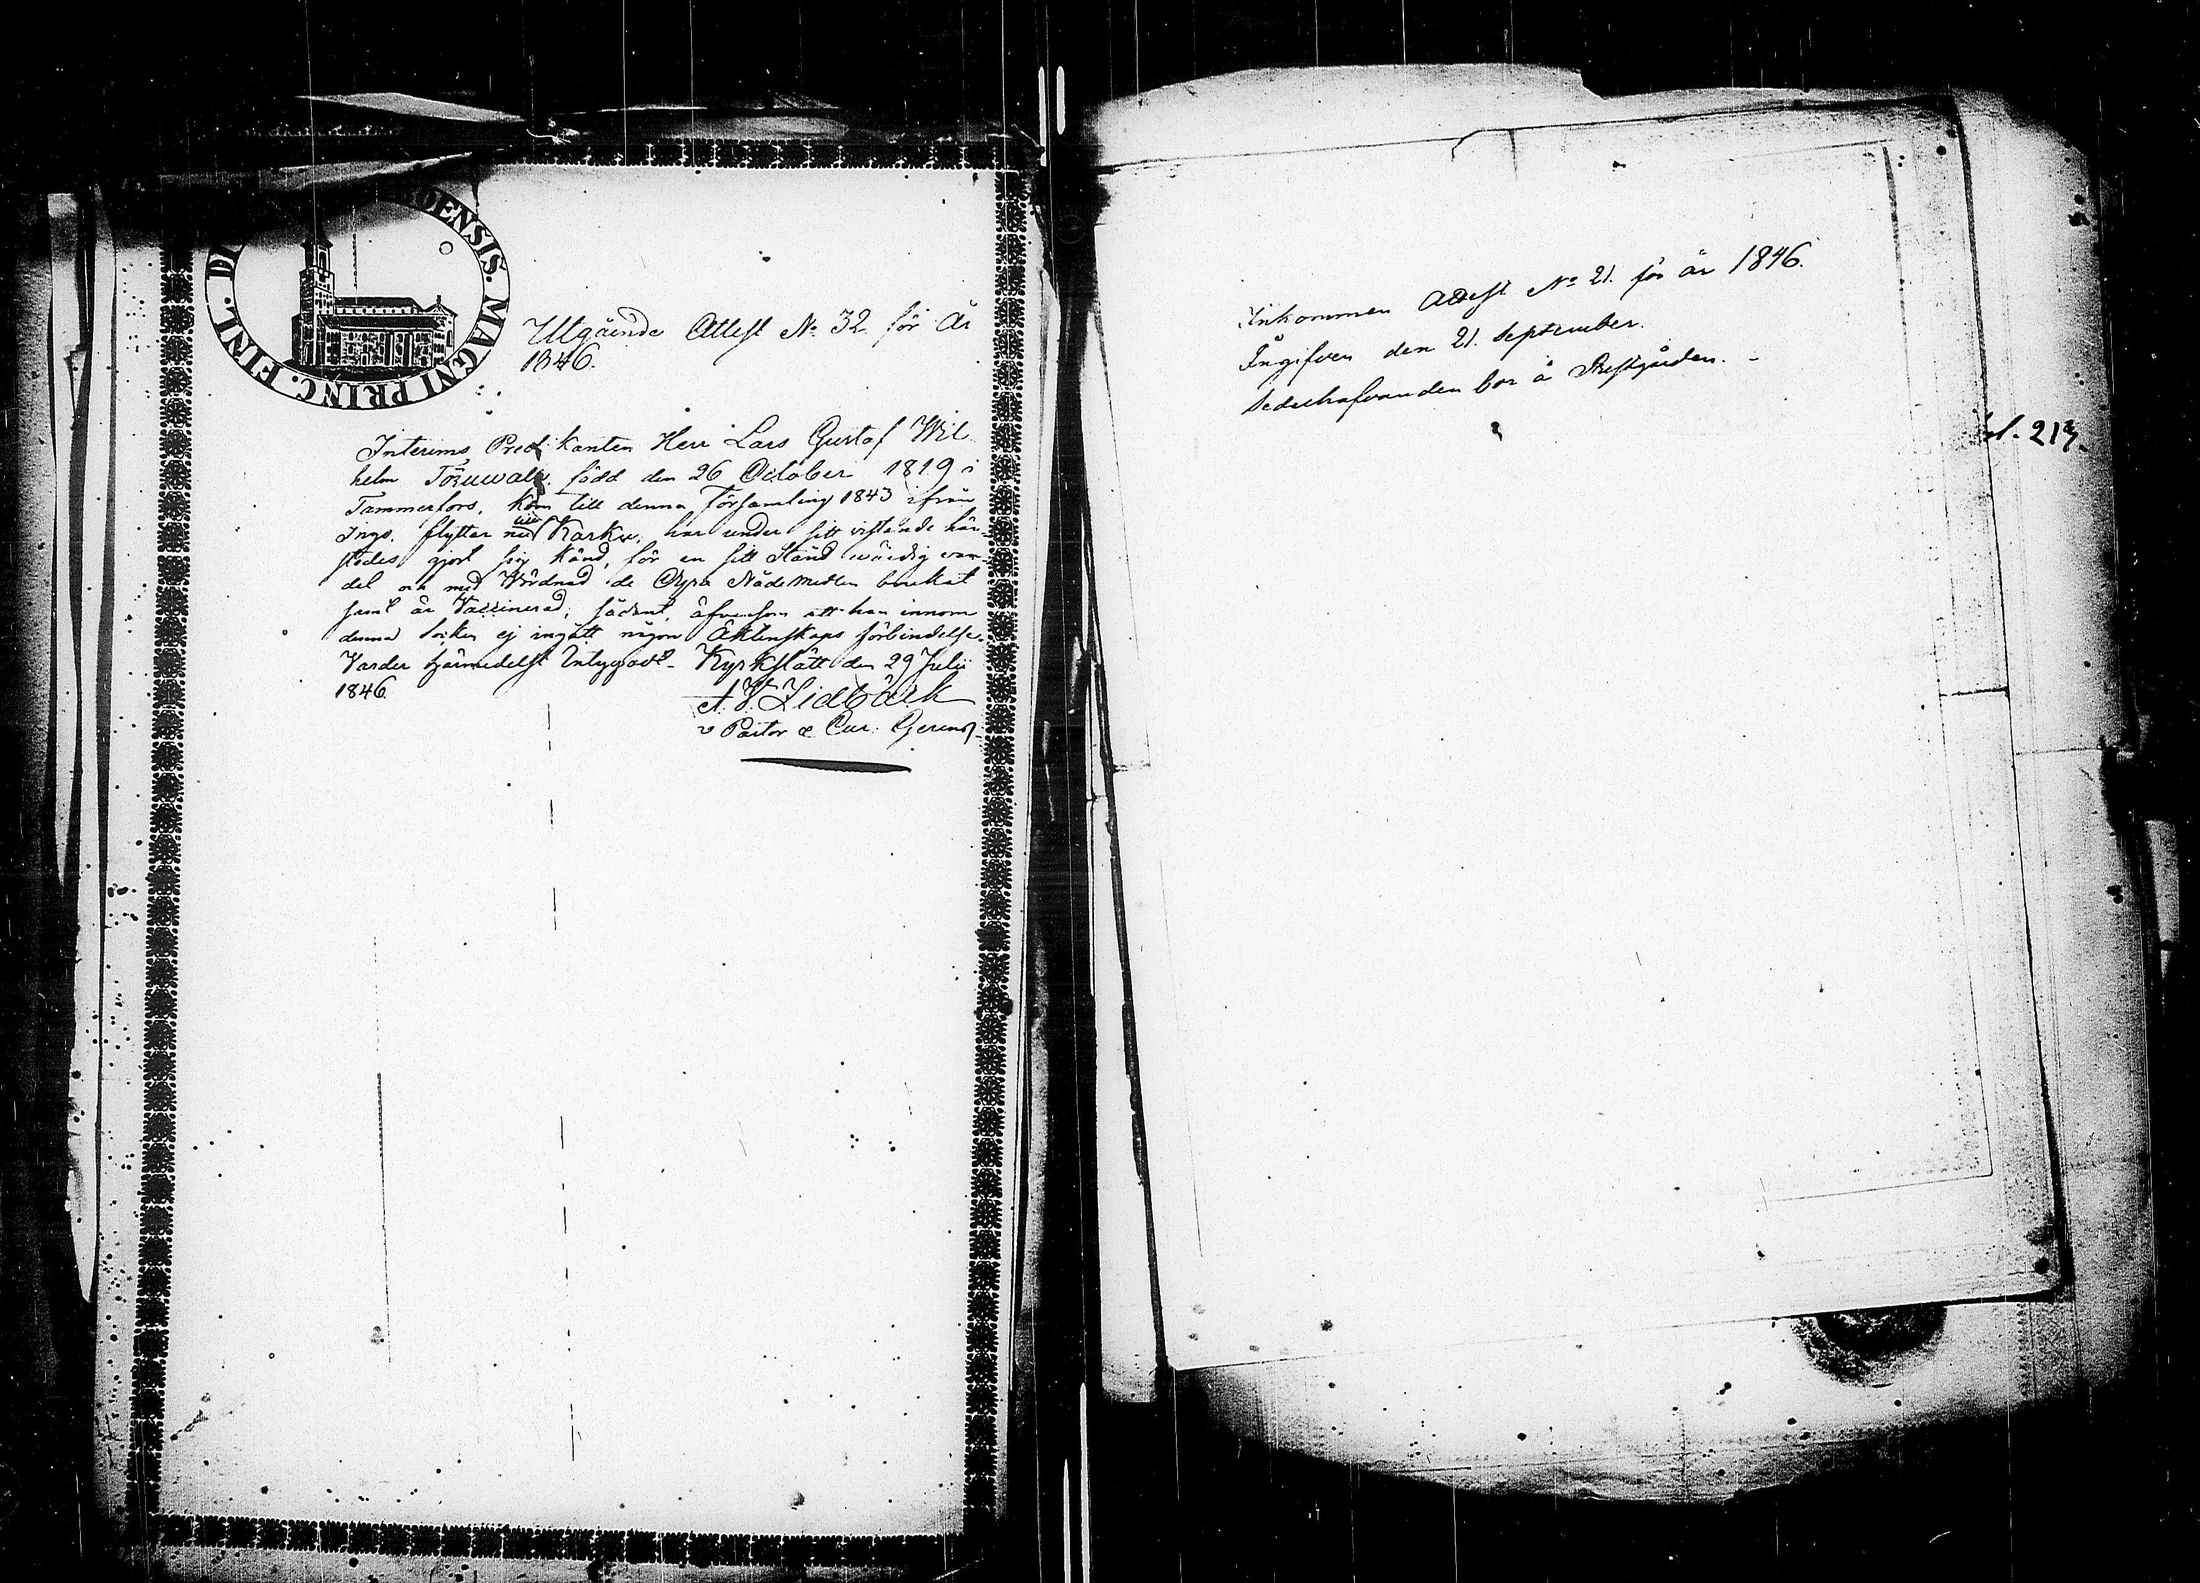 OENSIS. MAGNI PRINC. FINL. DI
Utgående Attest No 32 för År
1846.
Interims Predikanten Herr Lars Gustaf Wil
helm född den 26 October 1819 i
Tammerfors, kom till denna Församling 1843 ifrån
Ingo, flyttar nu till Karku, har under sitt vistande här-
städes gjort sig känd, för en sitt Stånd wärdig van-
del och med Wördnad de Dyra Nådemedlen brukat
samt är Vaccinerad; sådant, äfvensom att han innom
denna Socken ej ingått någon Äktenskaps förbindelse,
Varder härmedelst Intygadt. Kyrkslätt den 29 Julii
1846
A. V. Lidbäck
v Pastor & Cur. Gerens.
Inkommen Attest No 21. för år 1846.
Ingifven den 21. September.
Sedelhafvanden bor å Prestgården. -
217.